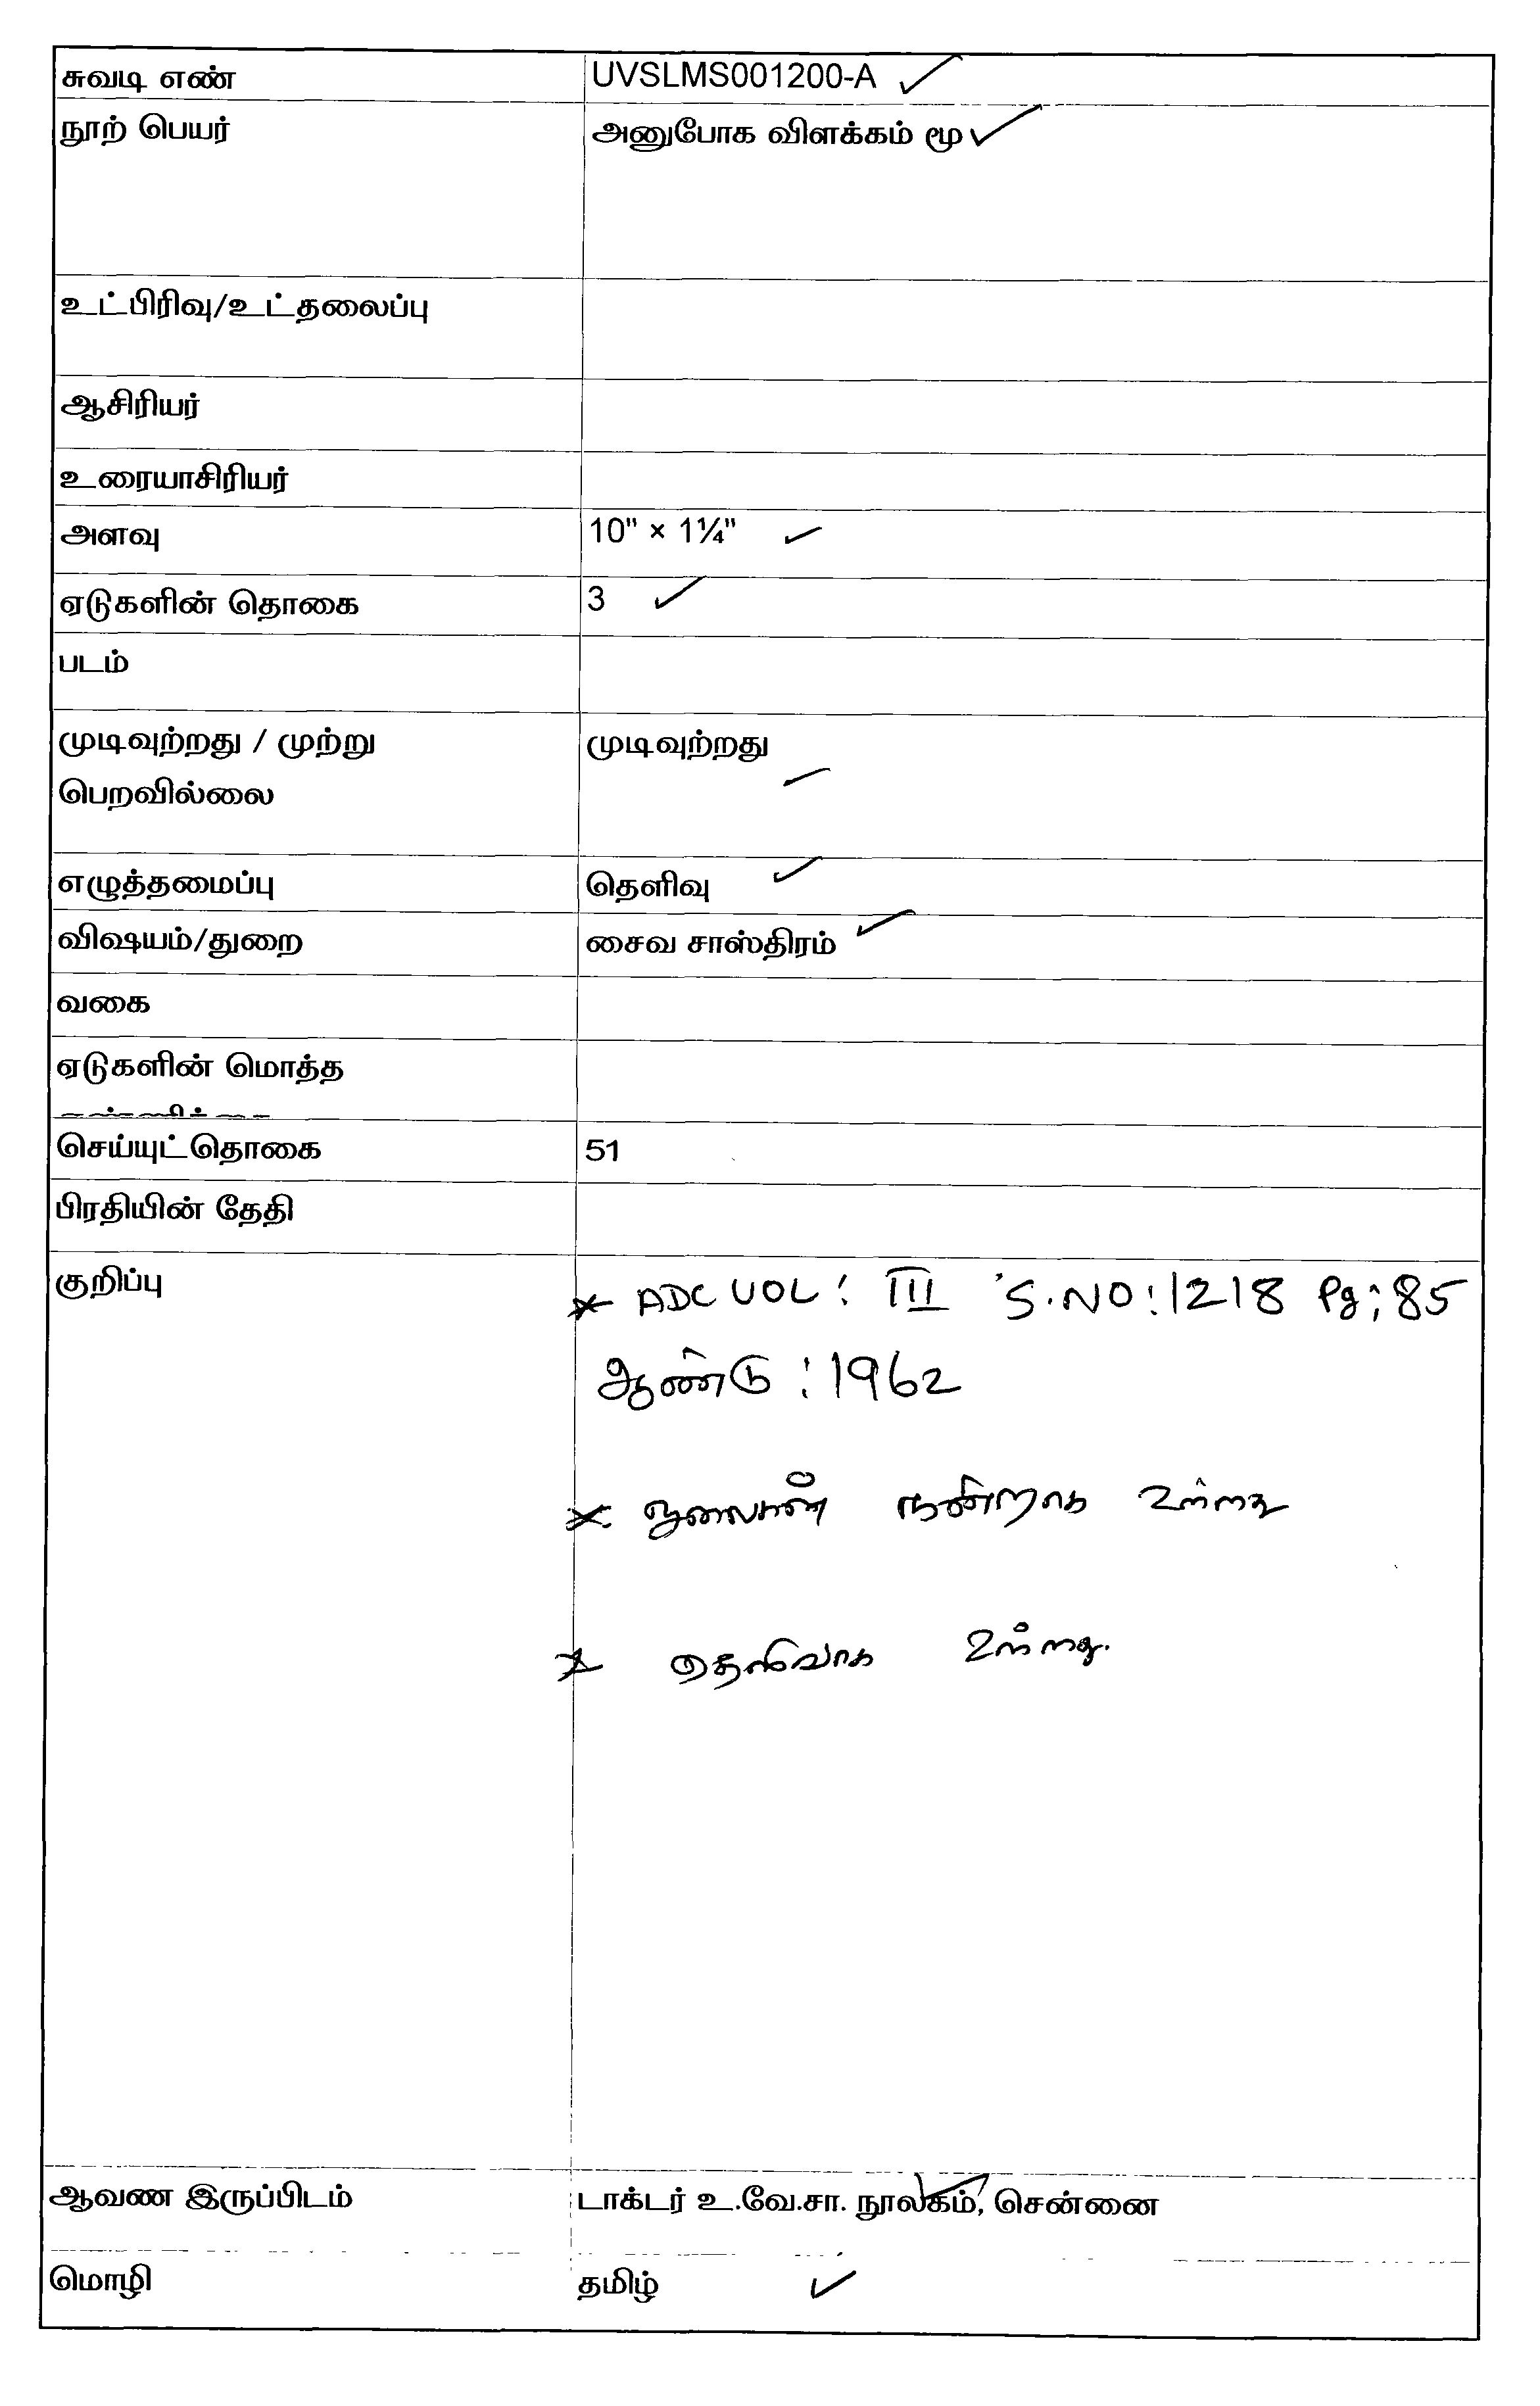 சுவடி எண் UVSLMS001200-A
நூற் பெயர் அனுபோக விளக்கம் மூ
உட்பிரிவு/உட்தலைப்பு
ஆசிரியர்
உரையாசிரியர்
அளவு 10" × 1¼"
ஏடுகளின் தொகை 3
படம்
முடிவுற்றது / முற்று முடிவுற்றது
பெறவில்லை
எழுத்தமைப்பு தெளிவு
விஷயம்/துறை சைவ சாஸ்திரம்
வகை
ஏடுகளின் மொத்த
செய்யுட்தொகை 51
பிரதியின் தேதி
குறிப்பு * ADC VOL: III S.NO:1218 Pg:85
ஆண்டு : 1962
* ஓலைகள் நன்றாக உள்ளது
* தெளிவாக உள்ளது.
ஆவண இருப்பிடம் டாக்டர் உ.வே.சா. நூலகம், சென்னை
மொழி தமிழ்